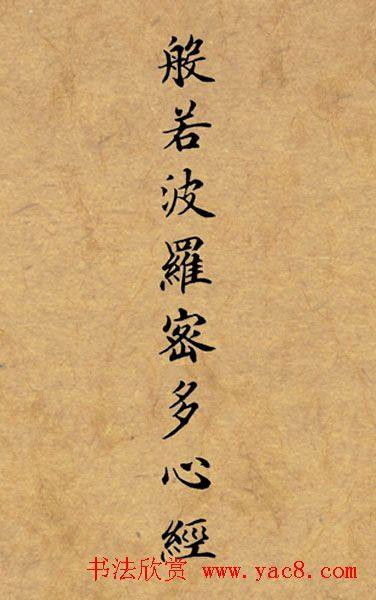 般若波羅密多心經
书法欣赏 www.yac8.com